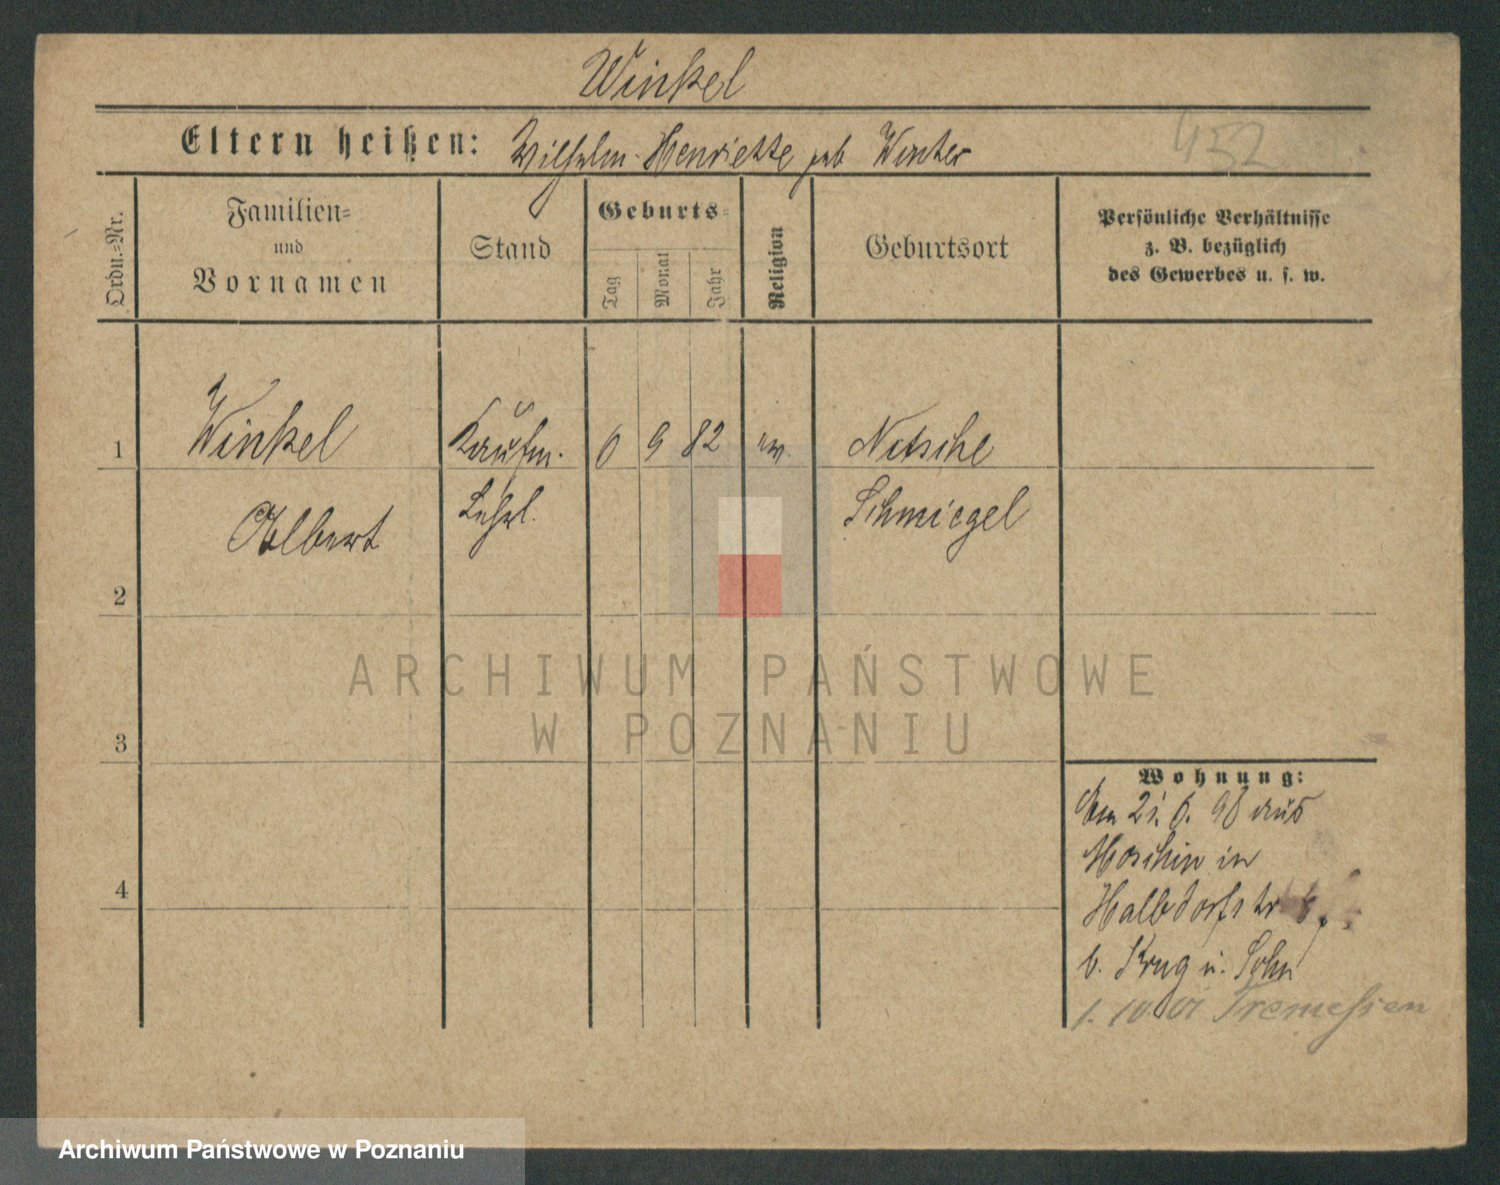 Winkel
Eltern heißen: Wilhelm Henriette geb Winter
452
Ordn.=Nr.
Familien=
und
Vornamen
Stand
Geburts=
Tag
Monat
Jahr
Religion
Geburtsort
Persönliche Verhältnisse
z. B. bezüglich
des Gewerbes u. s. w.
1 Winkel Kaufm. 6 9 82 ew. Netsche
Albert Lehrl. Schmiegel
2
ARCHIWUM PAŃSTWOWE
W POZNANIU
3
Wohnung:
Am 21. 6. 98 aus
Moschin in
4
Halbdorfstr
b. Krug u. Sohn
1. 10 01 Tremessen
Archiwum Państwowe w Poznaniu